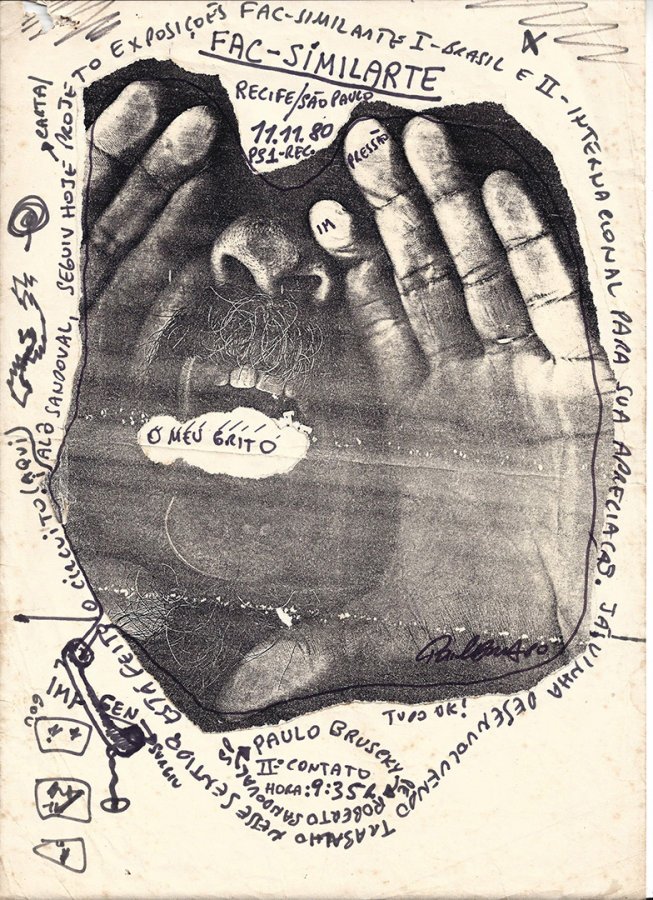 FAC-SIMILARTE
RECIFE/SÃO PAULO
11.11.80
PS1-REC.
PRESSÃO
IM
O MEU GRITO
CARTA/
ALÔ SANDOVAL, SEGUIU HOJE PROJETO EXPOSIÇÕES FAC-SIMILARTE I-BRASIL E II-INTERNACIONAL PARA SUA APRECIAÇÃO. JÁ VINHA DESENVOLVENDO TRABALHO NESSE SENTIDO
ESTÁ FEITO O CIRCUITO
(AQUI)
TUDO OK!
PAULO BRUSCKY
II-CONTATO
HORA: 9:35
ROBERTO SANDOVAL
GEN